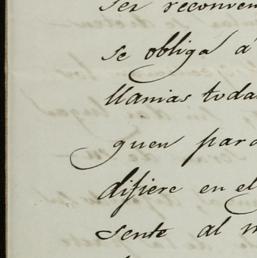 ser reconven
se obliga á
llanias toda
quen para
difiere en el
sente al